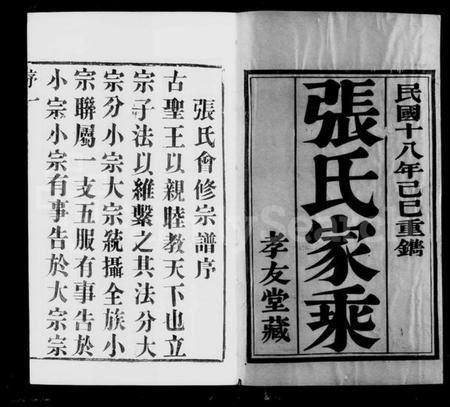 民國十八年己巳重鐫
張氏家乘
孝友堂藏
張氏會修宗譜序
古聖王以親睦教天下也立
宗子法以維繫之其法分大
宗分小宗大宗統攝全族小
宗聯屬一支五服有事告於
小宗小宗有事告於大宗宗
序一